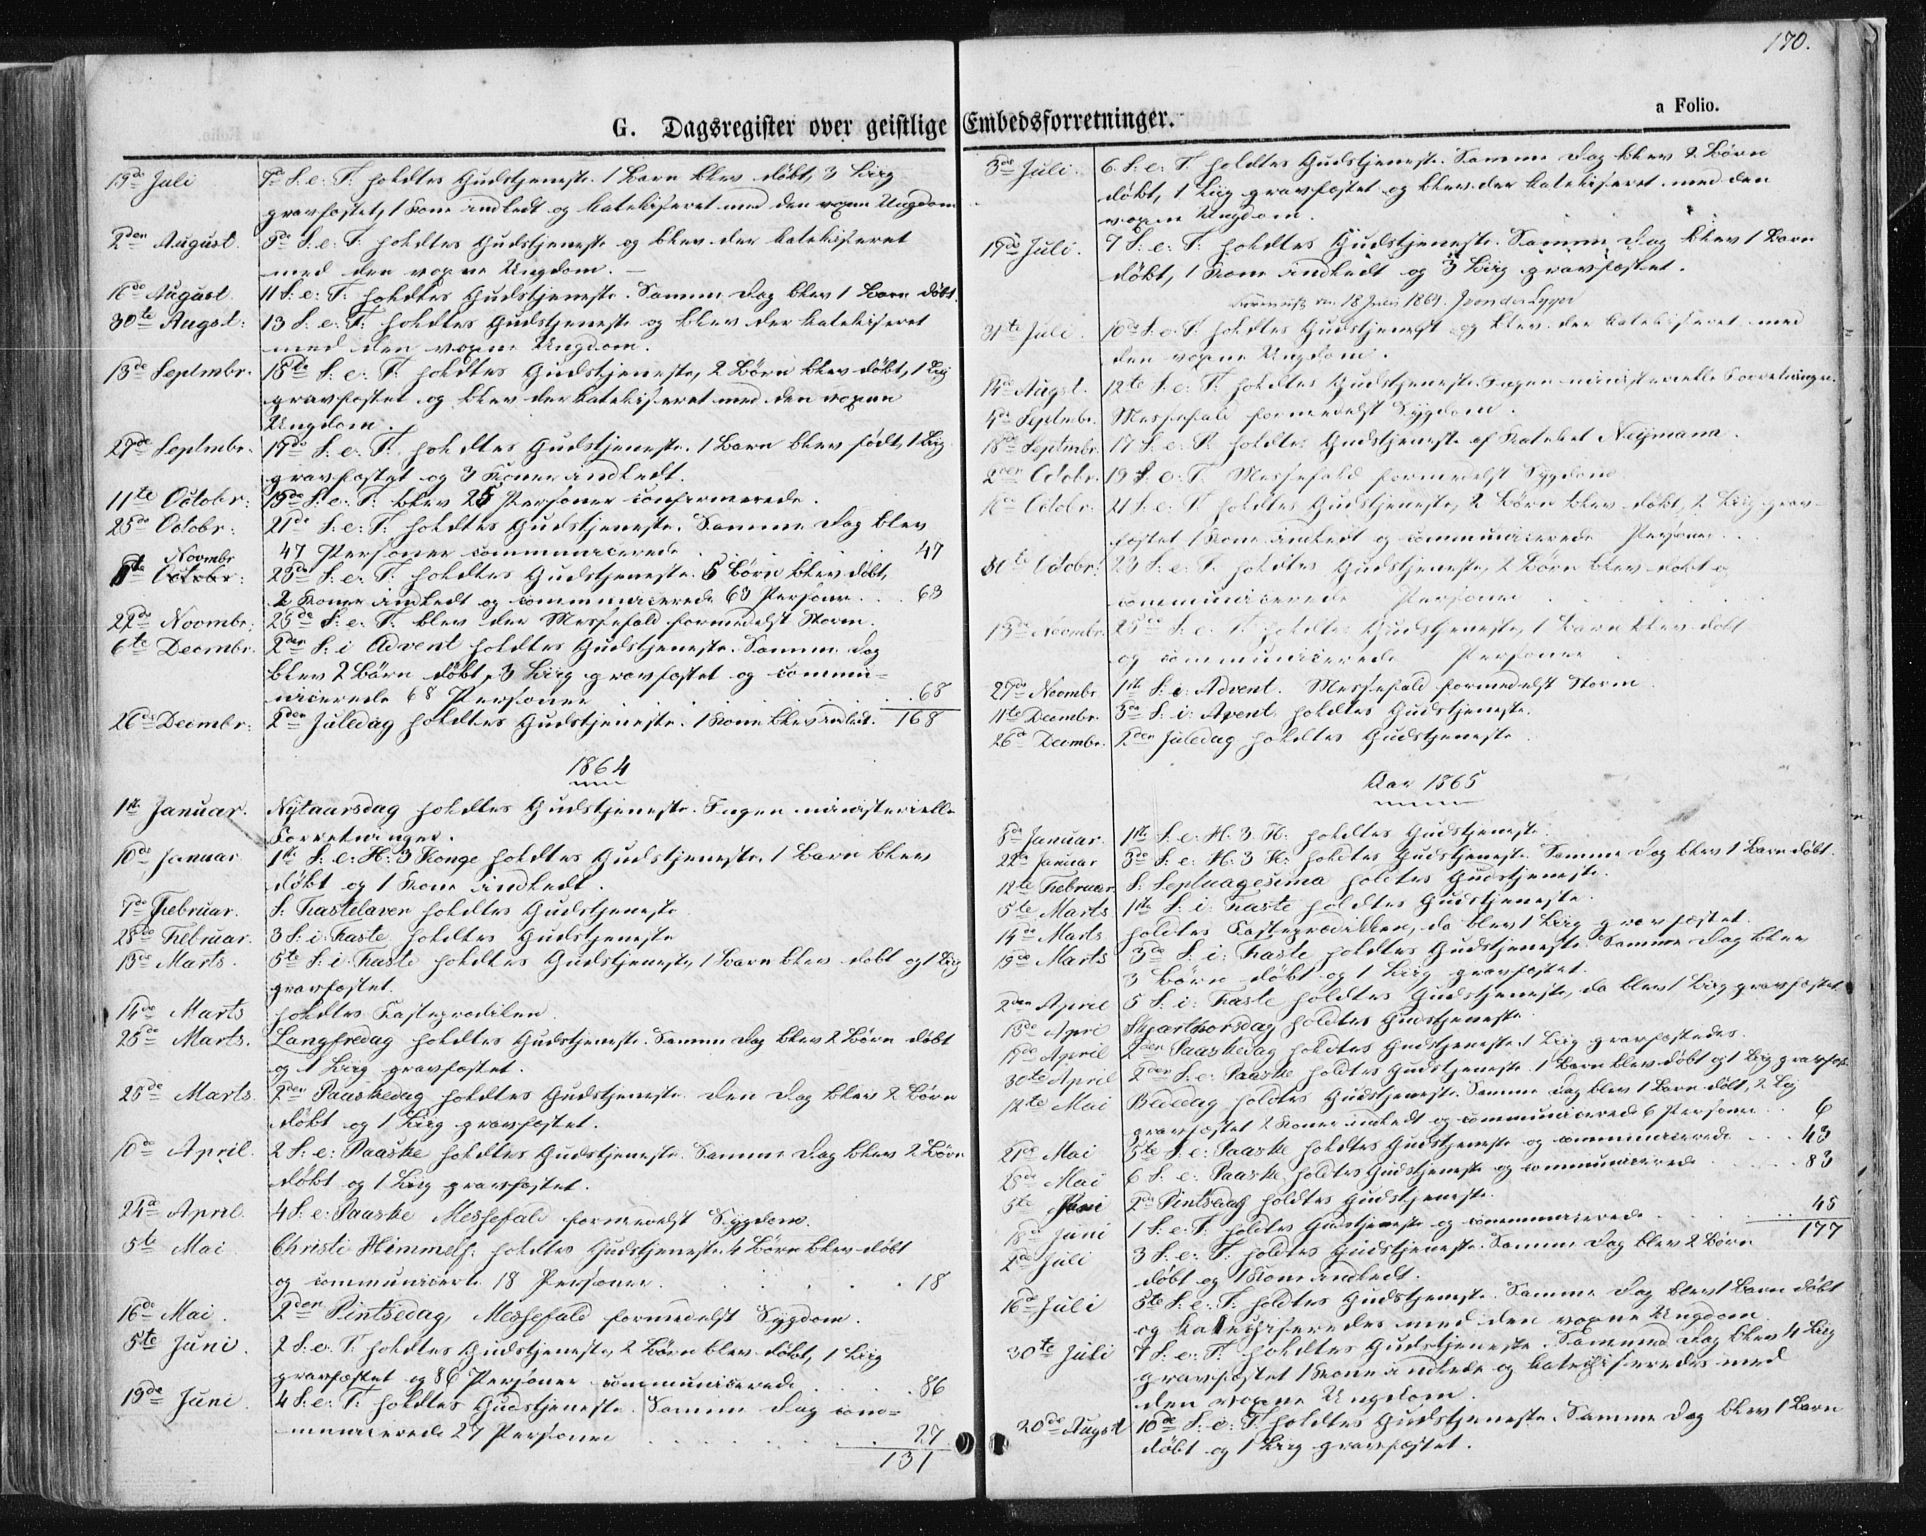 170.
G. Dagsregister over geistlige Embedsforretninger.
a Folio.
19de Juli 7de S: e: T: holdtes Gudstjeneste. 1 Barn blev døbt, 3 Liig
gravfæstet, 1 Kone indledt og katekiseret med den voxne Ungdom
2den August. 9de S: e: T: holdtes Gudstjeneste og blev der katekiseret
med den voxne Ungdom. –
16de August. 11 S: e: T: holdtes Gudstjeneste. Samme Dag blev 1 Barn døbt.
30te Augst: 13 S: e: T: holdtes Gudstjeneste og blev der katekiseret
med den voxne Ungdom.
13de Septmbr. 15de S: e: T: holdtes Gudstjeneste, 2 Børn blev døbt, 1 Liig
gravfæstet og blev der katekiseret med den voxne
Ungdom.
27de Septmbr. 17de S: e: T: holdtes Gudstjeneste. 1 Barn blev født, 1 Liig
gravfæstet og 3 Koner indledt.
11te Octobr: 19de S: e: T: blev 25 Personer confirmerede.
25de Octobr: 21de S: e: T: holdtes Gudstjeneste. Samme Dag blev
47 Personer communicerede . . . 47
Novmbr
8de Octobr: 23de S: e: T: holdtes Gudstjeneste. 5 Børn blev døbt,
2 Koner indledt og communicerede 63 Personer . . . 63
22de Novmbr: 25de S: e: T: blev der Messefald formedelst Storm.
6te Decmbr. 2den S: i Advent holdtes Gudstjeneste. Samme Dag
blev 2 Børn døbt, 3 Liig gravfæstet og commu=
nicerede 68 Personer . . . 68
26de Decmbr: 2den Juledag holdtes Gudstjeneste. 1 Kone blev indledt. 168
1864
1ste Januar. Nytaarsdag holdtes Gudstjeneste. Ingen ministerielle
Forretninger.
10de Januar 1ste S: e: H: 3 Konge holdtes Gudstjeneste. 1 Barn blev
døbt og 1 Kone indledt.
7de Februar. S: Fastelaven holdtes Gudstjeneste
28de Februar. 3 S: i Faste holdtes Gudstjeneste
13de Marts. 5te S: i Faste holdtes Gudstjeneste, 1 Barn blev døbt og 1 Liig
gravfæstet.
14de Marts holdtes Fasteprædiken.
25de Marts. Langfredag holdtes Gudstjeneste. Samme Dag blev 2 Børn døbt
og 1 Liig gravfæstet.
28de Marts. 2den Paaskedag holdtes Gudstjeneste. Den Dag blev 2 Børn
døbt og 1 Liig gravfæstet.
10de April. 2 S: e: Paaske holdtes Gudstjeneste. Samme Dag blev 2 Børn
døbt og 1 Liig gravfæstet.
24de April. 4 S: e: Paaske Messefald formedelst Sygdom.
5te Mai Christi Himmelf: holdtes Gudstjeneste. 4 Børn blev døbt
og communicerte 18 Personer . . . 18
16de Mai. 2den Pintsedag, Messefald formedelst Sygdom.
5te Juni. 2 S: e: T: holdtes Gudstjeneste, 2 Børn blev døbt, 1 Liig
gravfæstet og 86 Personer communicerede . . . 86
19de Juni. 4 S: e: T: holdtes Gudstjeneste. Samme Dag com=
municerede 27 Personer . . . 27
131
3de Juli. 6 S: e: T: holdtes Gudstjeneste. Samme Dag blev 2 Børn
døbt, 1 Liig gravfæstet og blev der katekiseret med den
voxne Ungdom.
17de Juli. 7 S: e: T: holdtes Gudstjeneste. Samme Dag blev 1 Barn
døbt, 1 Kone indledt og 3 Liig gravfæstet.
den 18 Juli 1864.
31te Juli. 10de S: e: T: holdtes Gudstjenest og blev der katekiseret med
den voxne Ungdom.
14de Augst. 12te S: e: T: holdtes Gudstjeneste. Ingen ministerielle Forretninger.
4de Septmbr. Messefald formedelst Sygdom.
18de Septmbr. 17 S: e: T: holdtes Gudstjeneste af Katekel Neumann.
2den Octobr. 19 S: e: T: Messefald formedelst Sygdom
Octobr. 21 S: e: T: holdtes Gudstjeneste, 2 Børn blev døbt, 2 Liig grav-
fæstet 1 Kone indledt og communicerede Personer . . .
Octobr. 23 S: e: T: holdtes Gudstjeneste, 2 Børn blev døbt og
communicerede Personer . . .
13de Novmbr. 25de S: e: T: holdtes Gudstjeneste, 1 Barn blev døbt
og communicerede Personer . . .
27de Novmbr 1ste S: i: Advent. Messefald formedelst Storm
11te Decmbr. 3de S: i: Avent holdtes Gudstjeneste.
26de Decmbr. 2den Juledag holdtes Gudstjeneste.
Aar 1865
8de Januar. 1ste S: e: H: 3 K: holdtes Gudstjeneste.
22de Januar 3de S: e: H: 3 K: holdtes Gudstjeneste. Samme Dag blev 1 Barn døbt.
12te Februar. S: Septuagesima holdtes Gudstjeneste.
5te Marts 1ste S: i: Faste holdtes Gudstjeneste.
14de Marts holdtes Fasteprædiken, da blev 1 Liig gravfæstet.
19de Marts 3de S: i: Faste holdtes Gudstjeneste. Samme Dag blev
3 Børn døbt og 1 Liig gravfæstet.
2den April 5 S: i: Faste holdtes Gudstjeneste, da blev 1 Liig gravfæstet
13de Apri Skjærthorsdag holdtes Gudstjeneste.
17de April 2den Paaskedag holdtes Gudstjeneste. 1 Liig gravfæstedes.
30te April 2den S: e: Paaske holdtes Gudstjeneste. 1 Barn blev døbt og 1 Liig gravfæs.
12te Mai Bededag holdtes Gudstjeneste. Samme Dag blev 1 Barn døbt, 2 Liig
gravfæstet 2 Koner indledt og communicerede 6 Personer . . 6
21de Mai 5te S: e: Paaske holdtes Gudstjeneste og communicerede . . . 43
28de Mai 6 S: e: Paaske holdtes Gudstjeneste og communicerede . . . 83
5te Juni 2den Pintsedag holdtes Gudstjeneste.
18de Juni 1 S: e: T: holdtes Gudstjeneste og communicerede . . . 45
177
2de Juli 3 S: e: T: holdtes Gudstjeneste. Samme Dag blev 2 Børn
døbt og 1 Kone indledt.
16de Juli 5te S: e: T: holdtes Gudstjeneste. Samme Dag blev 1 Barn døbt
og katechiseredes med den voxne Ungdom
30te Juli 7 S: e: T: holdtes Gudstjeneste. Samme Dag blev 4 Liig
gravfæstet 1 Kone indledt og katechiseredes med
den voxne Ungdom.
20de Augst 10de S: e: T: holdtes Gudstjeneste. Samme Dag blev 1 Barn
døbt og 1 Liig gravfæstet.